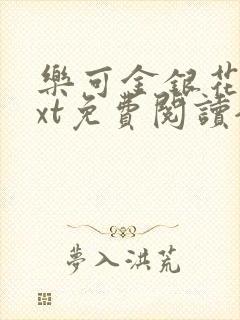 樂可金銀花
xt免費閱讀
夢入洪荒